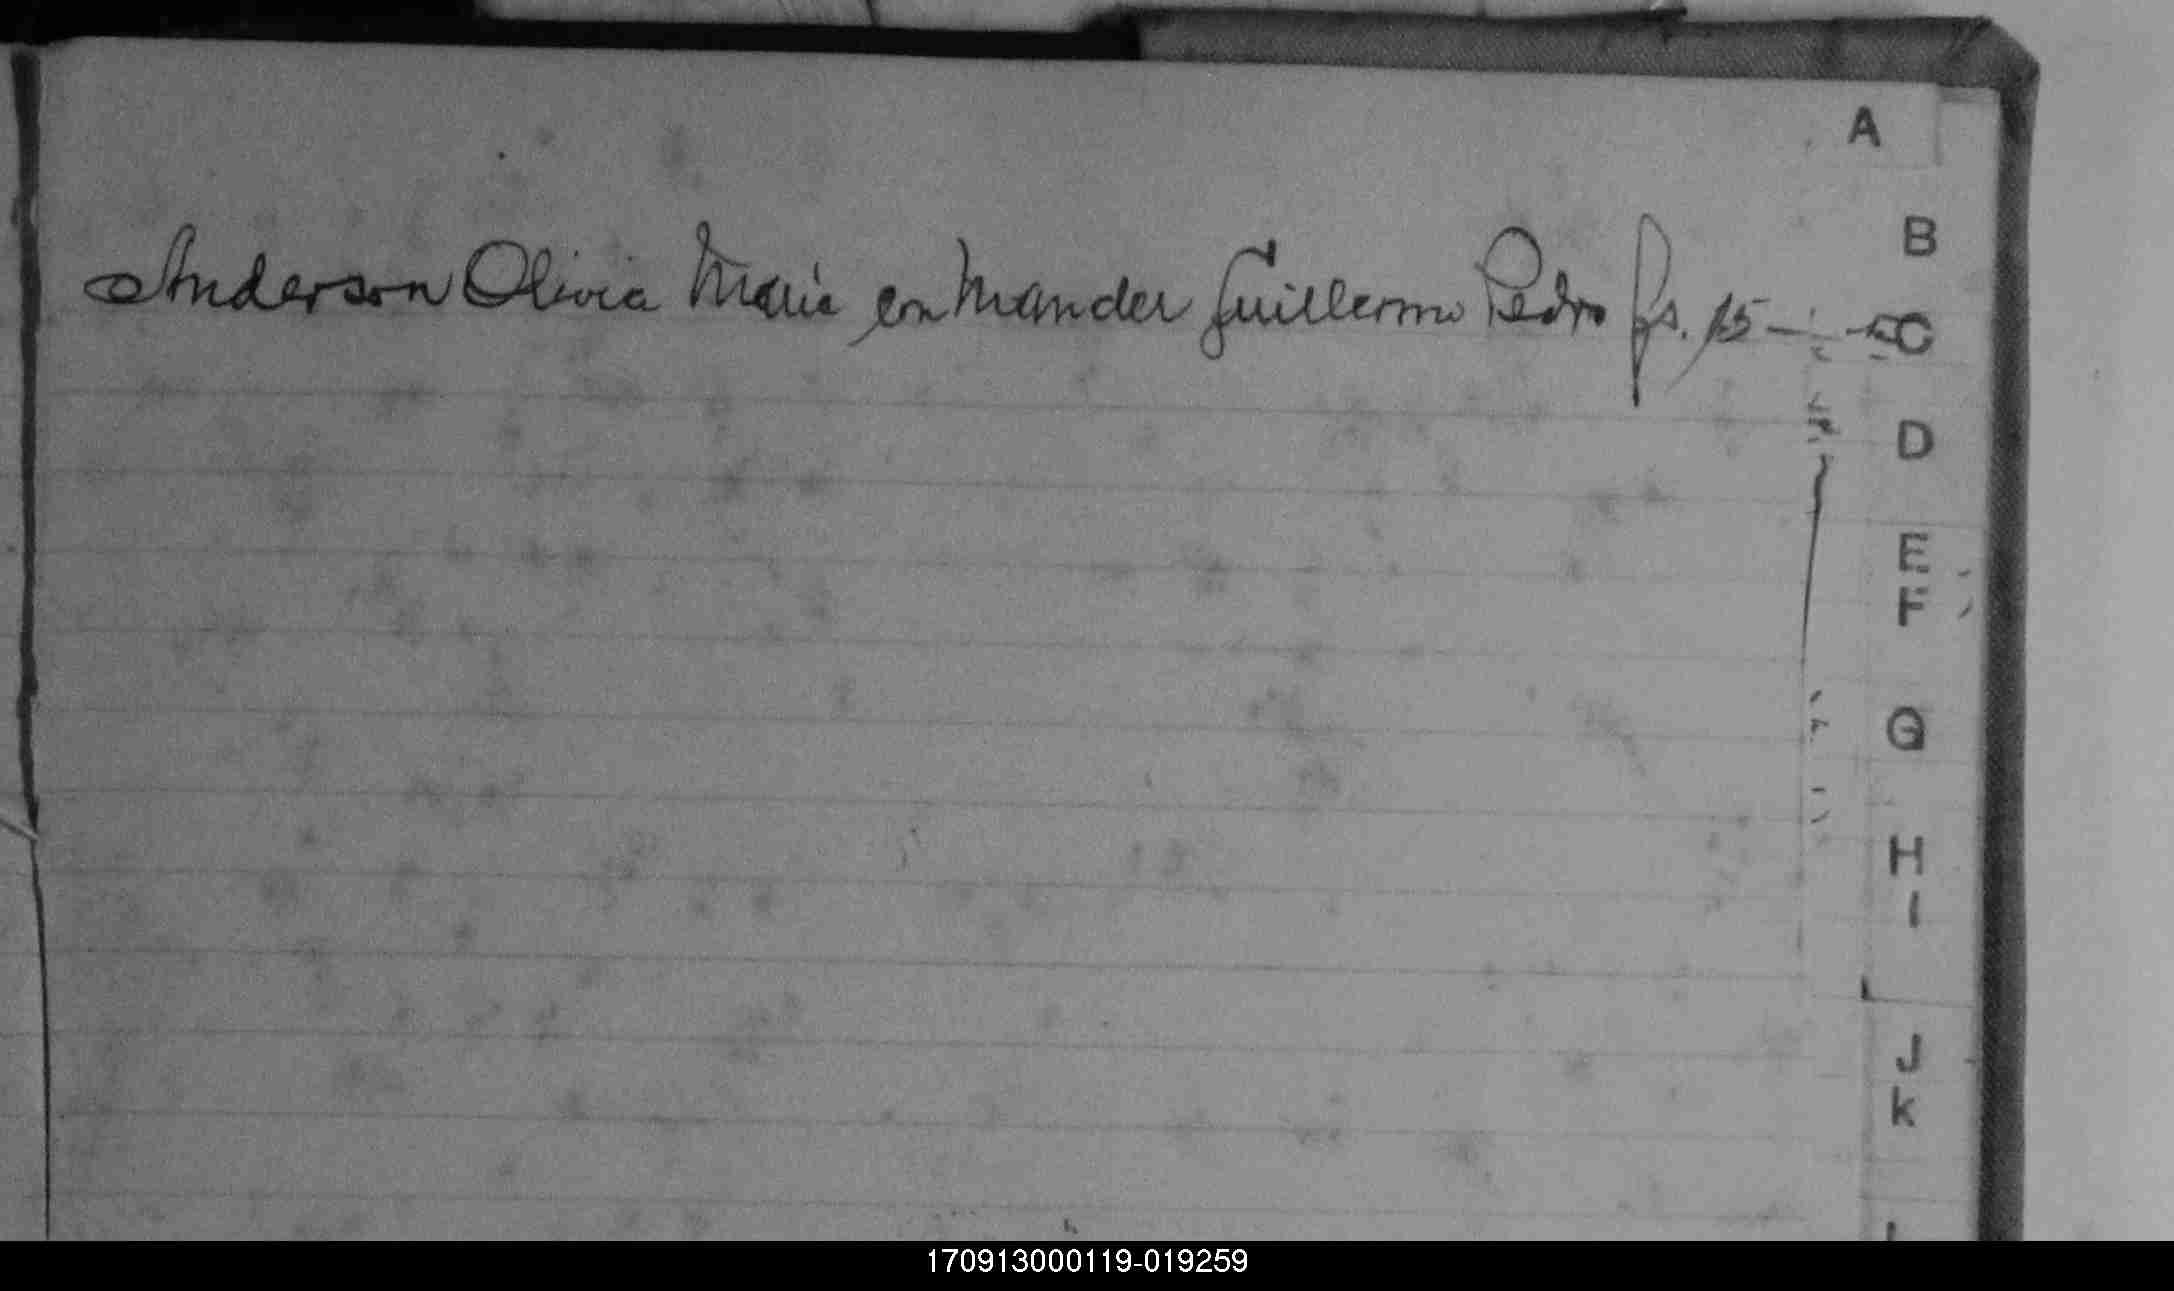 A
B
Anderson Olivia Maria con Mander Guillermo Pedro fs. 15 —
C
D
E
F
G
H
I
J
K
170913000119-019259